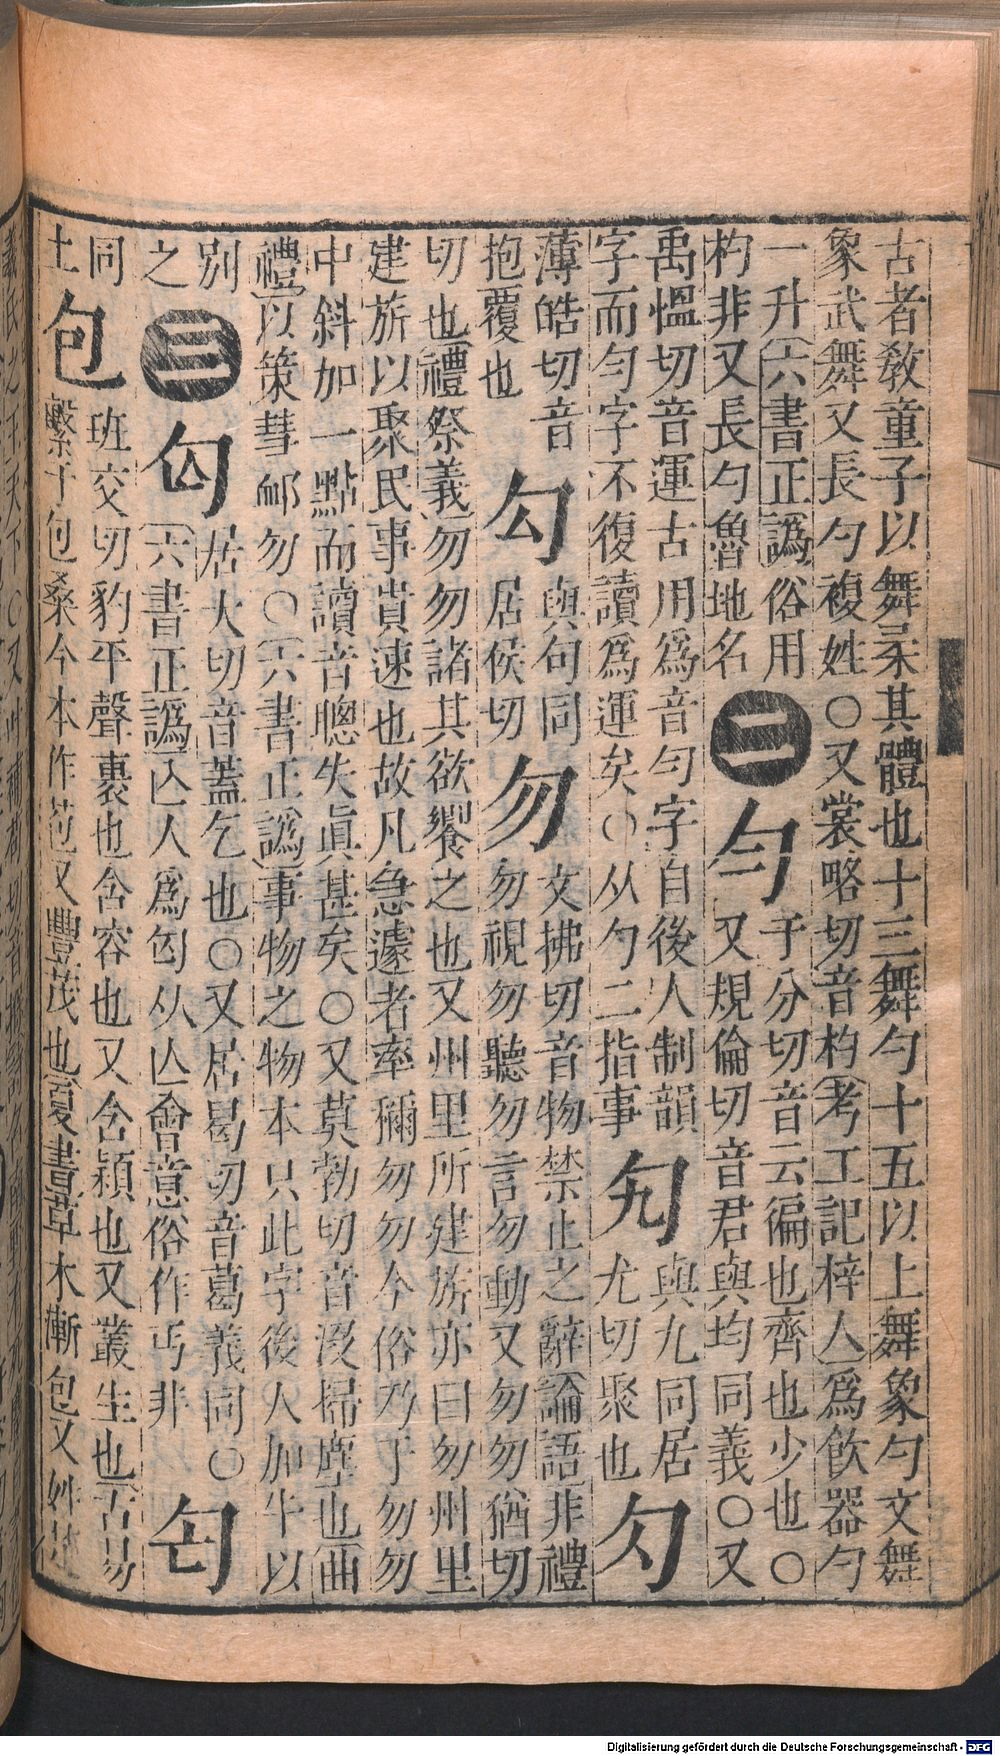 古者敎童子以舞柔其體也十三舞勺十五以上舞象勺文舞
象武舞又長勺複姓○又裳略切音杓考工記梓人爲飮器勺
一升六書正譌俗用
杓非又長勺魯地名
二
勻
予分切音云徧也齊也少也○
又規倫切音君與均同義○又
禹慍切音運古用爲音勻字自後人制韻
字而勻字不復讀爲運矣○从勺二指事
勼
與九同居
尤切聚也
勽
薄皓切音
抱覆也
勾
與句同
居侯切
勿
文拂切音物禁止之辭論語非禮
勿視勿聽勿言勿動又勿勿猶切
切也禮祭義勿勿諸其欲饗之也又州里所建旂亦曰勿州里
建旂以聚民事貴速也故凡急遽者率稱勿勿今俗乃于勿勿
中斜加一點而讀音聰失眞甚矣○又莫勃切音沒掃塵也曲
禮以策彗卹勿○六書正譌事物之物本只此字後人加牛以
別
之
三
匃
居大切音蓋乞也○又居曷切音葛義同○
六書正譌亾人爲匃从亾會意俗作丐非
匄
同
上
包
班交切豹平聲裹也含容也又含穎也又叢生也古易
繫于包桑今本作苞又豐茂也夏書草木漸包又姓楚
Digitalisierung gefördert durch die Deutsche Forschungsgemeinschaft - DFG